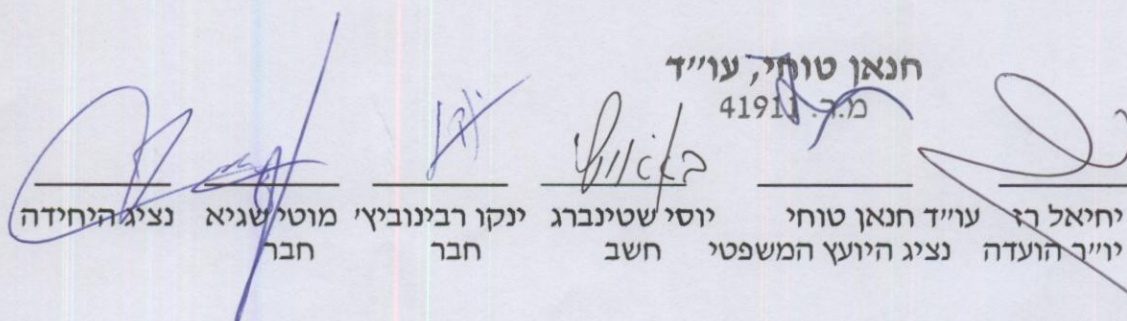 חנאן טוחי, עו״ד
מ.ר. 41911
יחיאל רז
יו״ר הועדה
עו״ד חנאן טוחי
נציג היועץ המשפטי
יוסי שטינברג
חשב
ינקו רבינוביץ׳
חבר
מוטי שגיא
חבר
נציג היחידה